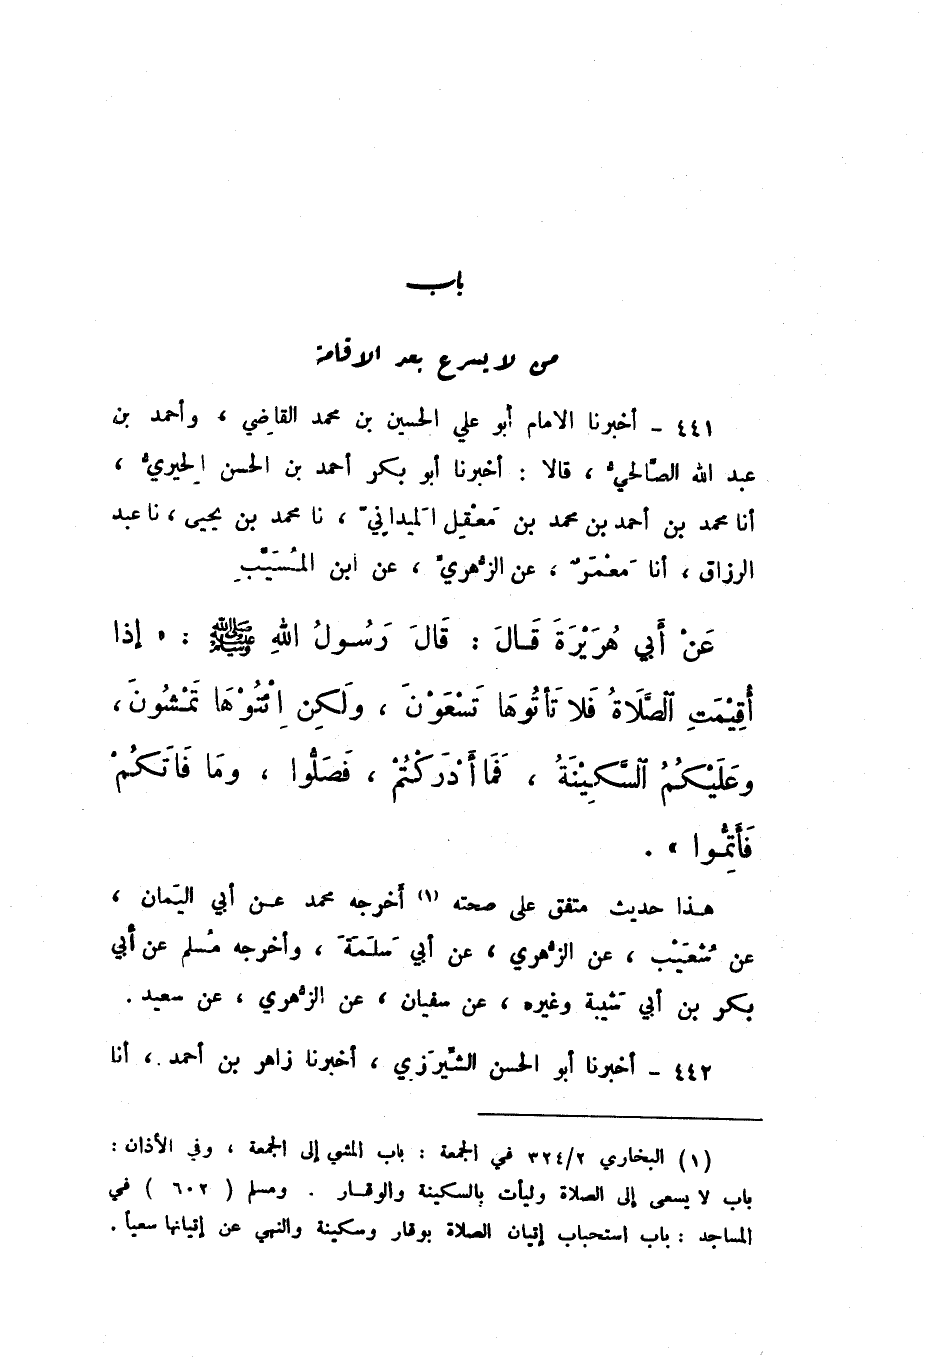 باب
من لا يسرع بعد الاقامة
٤٤١ - أخبرنا الامام أبو علي الحسين بن محمد القاضي ، وأحمد بن
عبد الله الصّالحيُّ ، قالا : أخبرنا أبو بكر أحمد بن الحسن الحِيريُّ ،
أنا محمد بن أحمد بن محمد بن مَعْقِل المَيدانِيّ ، نا محمد بن يحيى ، نا عبد
الرزاق ، أنا مَعْمَرٌ ، عن الزُّهريِّ ، عن ابن المُسَيَّبِ
عَنْ أَبي هُرَيْرَةَ قَالَ : قَالَ رَسُولُ اللهِ ﷺ : « إذا
أُقِيْمَتِ الصَّلَاةُ فَلا تَأتُوهَا تَسْعَوْنَ ، ولَكِن اِئْتُوْهَا تَمْشُونَ ،
وعَلَيْكُمُ السَّكِيْنَةُ ، فَمَا أَدْرَكْتُمْ ، فَصَلُّوا ، ومَا فَاتَكُمْ
فَأَتِمُّوا » .
هذا حديث متفق على صحته (١) أخرجه محمد عن أبي اليَمان ،
عن شُعَيْب ، عن الزُّهري ، عن أبي سَلَمَةَ ، وأخرجه مُسلم عن أبي
بكر بن أبي شَيبة وغيره ، عن سفيان ، عن الزُّهري ، عن سعيد .
٤٤٢ - أخبرنا أبو الحسن الشِّيرَزي ، أخبرنا زاهر بن أحمد ، أنا
(١) البخاري ٣٢٤/٢ في الجمعة : باب المشي إلى الجمعة ، وفي الأذان :
باب لا يسعى إلى الصلاة وليأت بالسكينة والوقار . ومسلم ( ٦٠٢ ) في
المساجد : باب استحباب إتيان الصلاة بوقار وسكينة والنهي عن إتيانها سعياً .